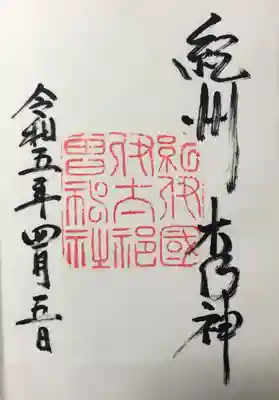 紀州 木乃神
紀伊國
伊太祁
曽神社
令和五年四月五日